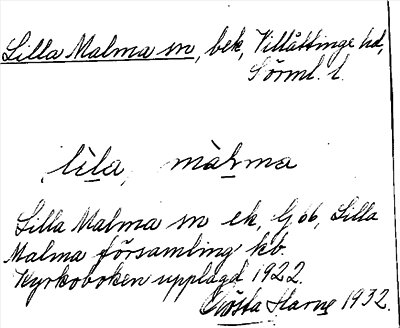 Lilla Malma sn, bek, Villåttinge hd,
Sörml. l.
lìla, màlma
Lilla Malma sn ek, Gj 66, Lilla
Malma församling kb
Kyrkoboken upplagd 1922.
Gösta 1932.